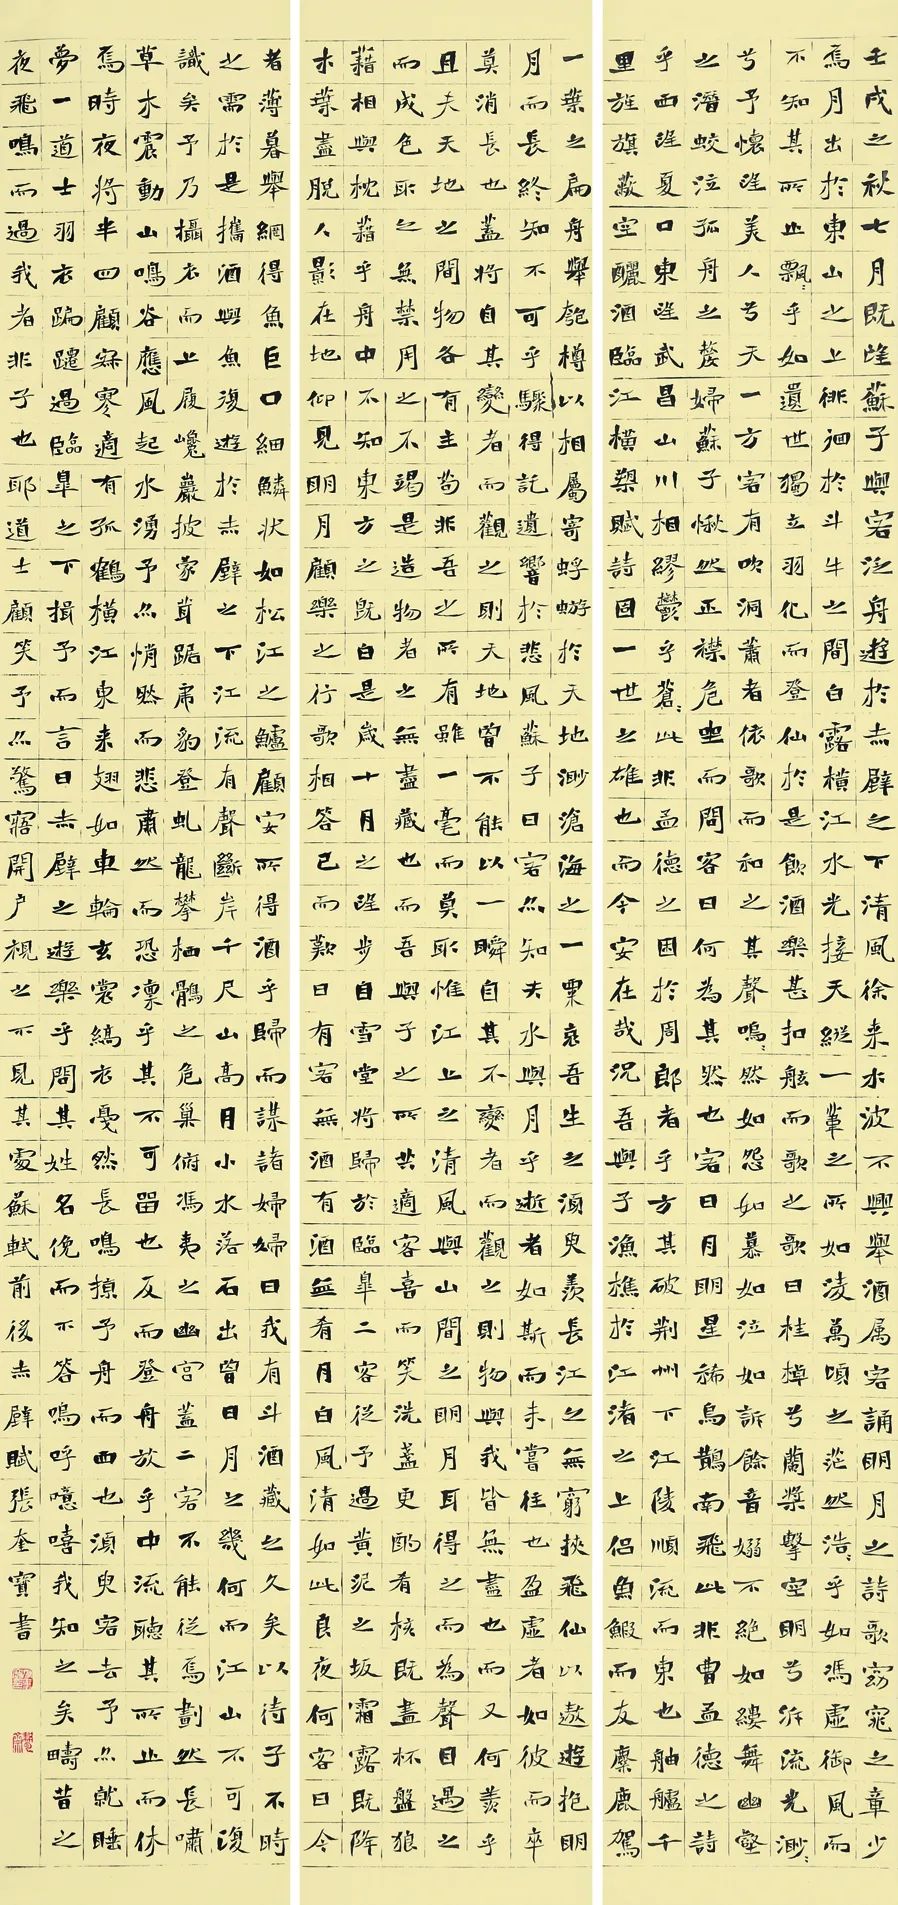 壬戌之秋七月既望蘇子與客泛舟遊於赤壁之下清風徐来水波不興舉酒属客誦明月之詩歌窈窕之章少
焉月出於東山之上徘徊於斗牛之間白露橫江水光接天縱一葦之所如淩萬頃之茫然浩:乎如馮虛御風而
不知其所止飄:乎如遺世獨立羽化而登仙於是飲酒樂甚扣舷而歌之歌曰桂棹兮蘭槳擊空明兮泝流光渺:
兮予懷望美人兮天一方客有吹洞蕭者依歌而和之其聲嗚:然如怨如慕如泣如訴餘音嫋不絕如縷舞幽壑
之潛蛟泣孤舟之嫠婦蘇子愀然正襟危坐而問客曰何為其然也客曰月明星稀烏鵲南飛此非曹孟德之詩
乎西望夏口東望武昌山川相繆鬱乎蒼:此非孟德之困於周郎者乎方其破荊州下江陵順流而東也舳艫千
里旌旗蔽空釃酒臨江橫槊賦詩固一世之雄也而今安在哉況吾與子漁樵於江渚之上侣魚鰕而友麋鹿駕
一葉之扁舟舉匏樽以相屬寄蜉蝣於天地渺滄海之一粟哀吾生之須臾羨長江之無窮挾飛仙以遨遊抱明
月而長終知不可乎驟得託遺響於悲風蘇子曰客亦知夫水與月乎逝者如斯而未嘗往也盈虛者如彼而卒
莫消長也蓋將自其變者而觀之則天地曾不能以一瞬自其不變者而觀之則物與我皆無盡也而又何羨乎
且夫天地之間物各有主苟非吾之所有雖一毫而莫取惟江上之清風與山間之明月耳得之而為聲目遇之
而成色取之無禁用之不竭是造物者之無盡藏也而吾與子之所共適客喜而笑洗盞更酌肴核既盡杯盤狼
藉相與枕藉乎舟中不知東方之既白是歲十月之望步自雪堂將歸於臨皋二客從予過黃泥之坂霜露既降
木葉盡脫人影在地仰見明月顧樂之行歌相答已而歎曰有客無酒有酒無肴月白風清如此良夜何客曰今
者薄暮舉網得魚巨口細鱗狀如松江之鱸顧安所得酒乎歸而謀諸婦婦曰我有斗酒藏之久矣以待子不時
之需於是攜酒與魚復遊於赤壁之下江流有聲斷岸千尺山高月小水落石出曾日月之幾何而江山不可復
識矣予乃攝衣而上履巉巖披蒙茸踞虎豹登虬龍攀栖鶻之危巢俯馮夷之幽宮蓋二客不能從焉劃然長嘯
草木震動山鳴谷應風起水湧予亦悄然而悲肅然而恐凜乎其不可留也反而登舟放乎中流聽其所止而休
焉時夜將半四顧寂寥適有孤鶴橫江東来翅如車輪玄裳縞衣戛然長鳴掠予舟而西也須臾客去予亦就睡
夢一道士羽衣蹁躚過臨皋之下揖予而言曰赤壁之遊樂乎問其姓名俛而不答嗚呼噫嘻我知之矣疇昔之
夜飛鳴而過我者非子也耶道士顧笑予亦驚寤開戶視之不見其處蘇軾前後赤壁賦張奎寶書